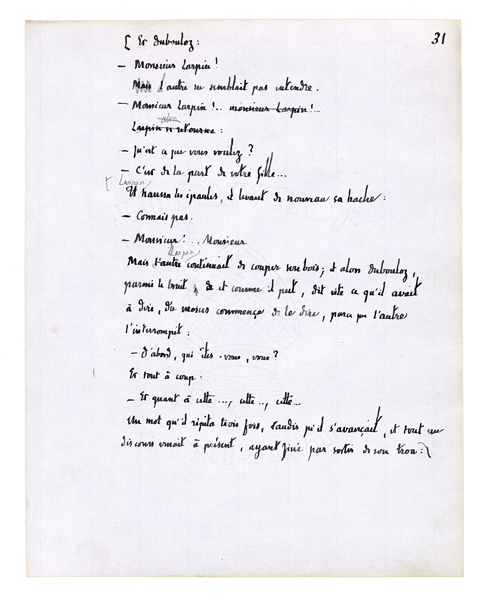 31
[ Et Duborloz :
— Monsieur Larpin !
Mais l'autre ne semblait pas entendre.
— Monsieur Larpin !.. monsieur Larpin !..
Larpin se retourna :
— Qu'est ce que vous voulez ?
— C'est de la part de votre fille...
[ Larpin
Il haussa les épaules, et levant de nouveau sa hache :
— Connais pas.
— Monsieur ! .. Monsieur
Larpin
Mais l'autre continuait de couper son bois ; et alors Duborloz,
parmi le bruit, et comme il put, dit vite ce qu'il avait
à dire, du moins commença de le dire, parce que l'autre
l'interrompit :
— D'abord, qui êtes-vous, vous ?
Et tout à coup :
— Et quant à cette ..., cette ..., cette...
Un mot qu'il répéta trois fois, tandis qu'il s'avançait, et tout un
discours venait à présent, ayant fini par sortir de son trou : ]